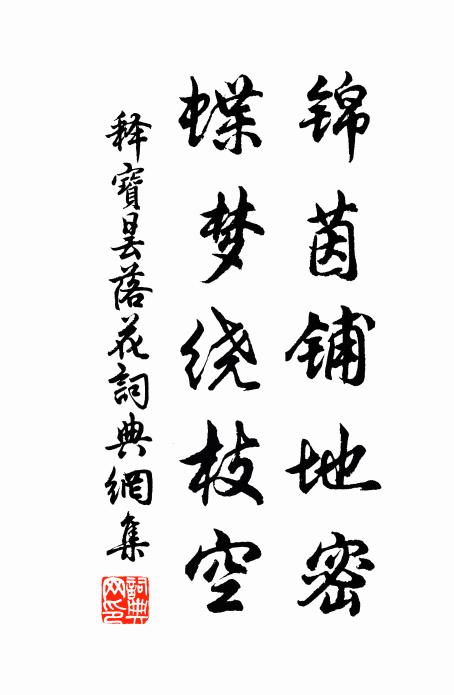 锦茵铺地密
蝶梦绕枝空
释寳昙落花詞典網集
詞典网印